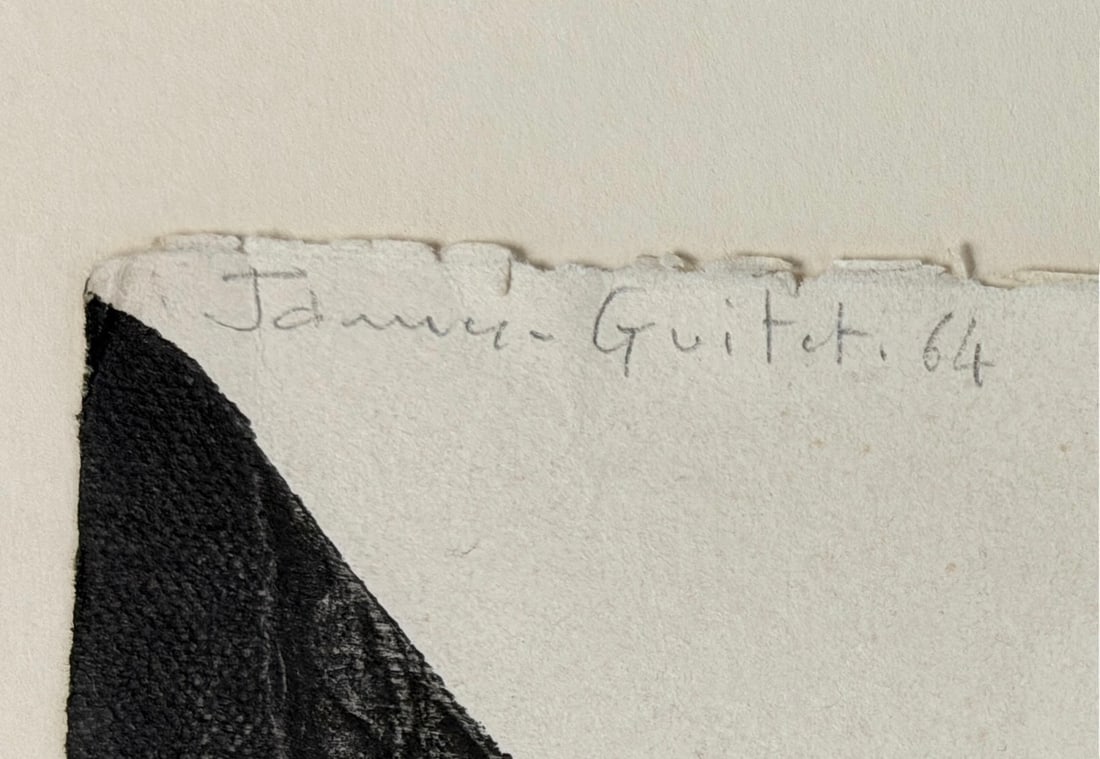 James- Guitet. 64